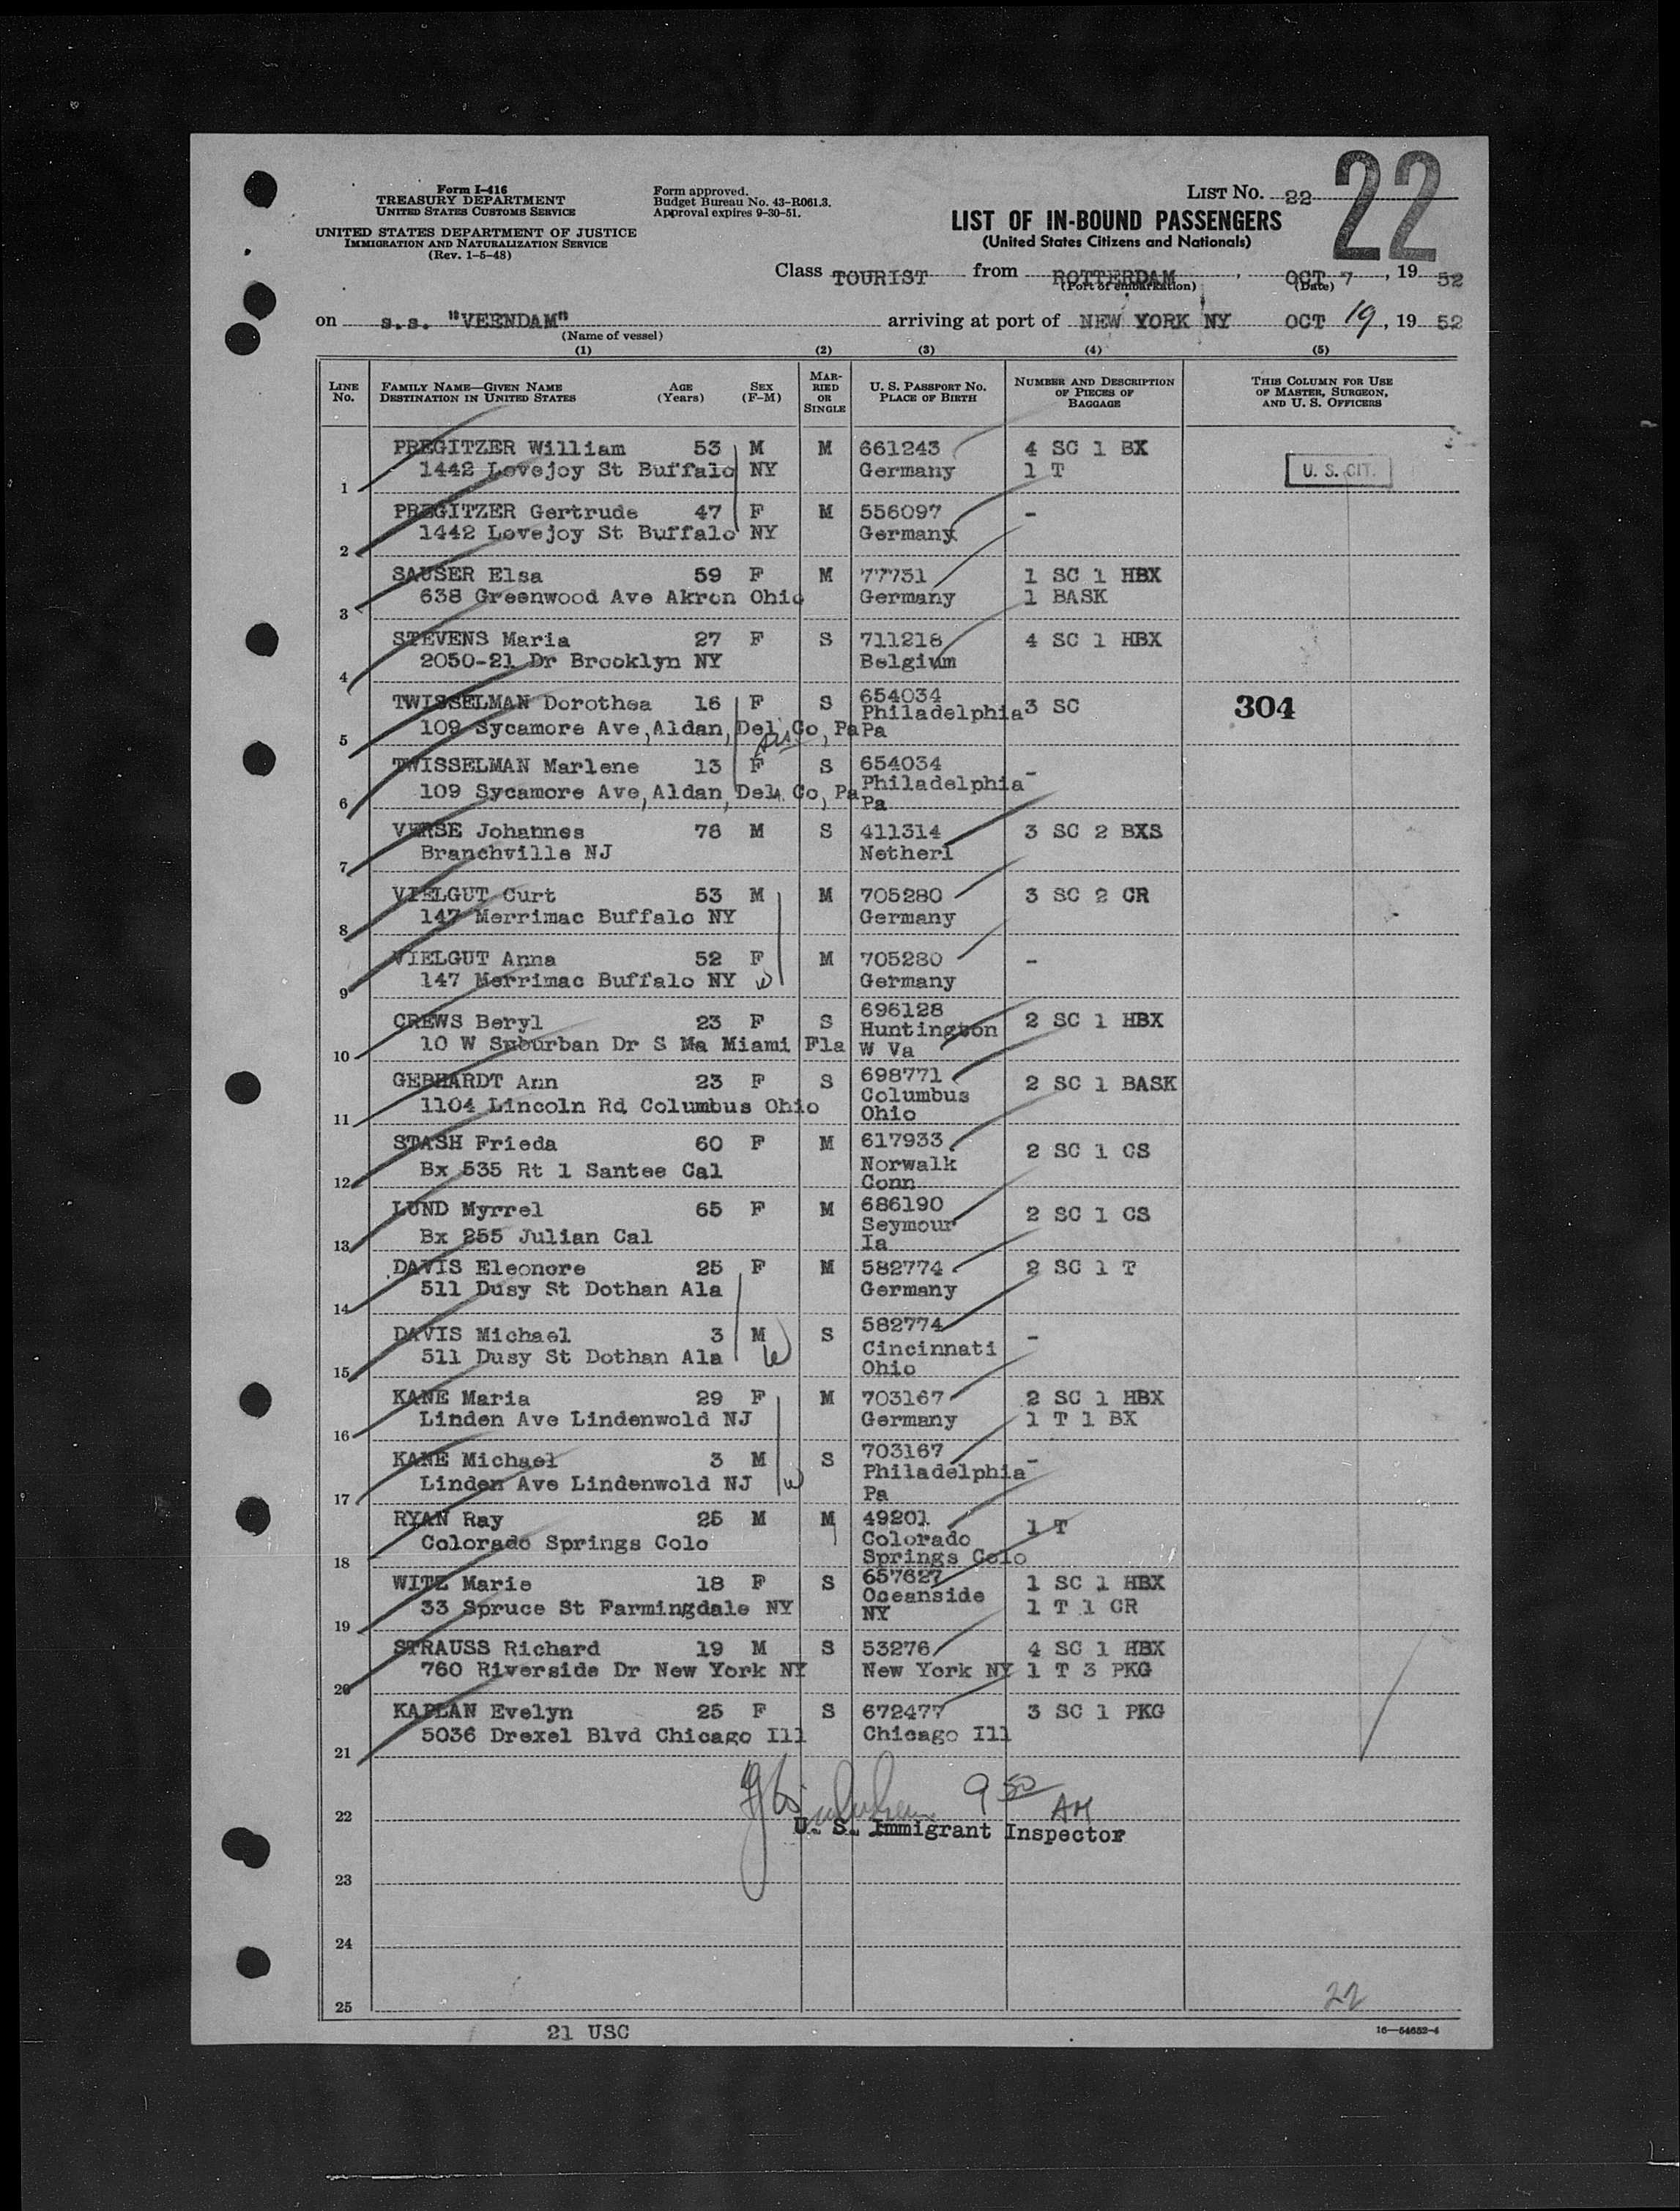 Form I-416
TREASURY DEPARTMENT
UNITED STATES CUSTOMS SERVICE
UNITED STATES DEPARTMENT OF JUSTICE
IMMIGRATION AND NATURALIZATION SERVICE
(Rev. 1-5-48)
Form approved.
Budget Bureau No. 43-R061.3.
Approval expires 9-30-51.
LIST NO. 22
22
LIST OF IN-BOUND PASSENGERS
(United States Citizens and Nationals)
Class TOURIST from ROTTERDAM, OCT 7, 19 52
(Port of embarkation) (Date)
on s.s. "VEENDAM" arriving at port of NEW YORK NY OCT 19, 19 52
(Name of vessel)
(1) (2) (3) (4) (5)
LINE No. FAMILY NAME—GIVEN NAME DESTINATION IN UNITED STATES AGE (Years) SEX (F-M) MARRIED OR SINGLE U. S. PASSPORT NO. PLACE OF BIRTH NUMBER AND DESCRIPTION OF PIECES OF BAGGAGE THIS COLUMN FOR USE OF MASTER, SURGEON, AND U. S. OFFICERS
PREGITZER William 53 M M 661243 4 SC 1 BX
1 1442 Lovejoy St Buffalo NY Germany 1 T U. S. CIT.
PREGITZER Gertrude 47 F M 556097 -
2 1442 Lovejoy St Buffalo NY Germany
SAUSER Elsa 59 F M 77751 1 SC 1 HBX
3 638 Greenwood Ave Akron Ohio Germany 1 BASK
STEVENS Maria 27 F S 711218 4 SC 1 HBX
4 2050-21 Dr Brooklyn NY Belgium
TWISSELMAN Dorothea 16 F S 654034 Philadelphia 3 SC 304
5 109 Sycamore Ave, Aldan, Del. Co, Pa Pa
TWISSELMAN Marlene 13 F S 654034 Philadelphia -
6 109 Sycamore Ave, Aldan, Del. Co, Pa Pa
VERSE Johannes 78 M S 411314 3 SC 2 BXS
7 Branchville NJ Netherl
VIELGUT Curt 53 M M 705280 3 SC 2 CR
8 147 Merrimac Buffalo NY Germany
VIELGUT Anna 52 F M 705280 -
9 147 Merrimac Buffalo NY W Germany
CREWS Beryl 23 F S 696128 Huntington 2 SC 1 HBX
10 10 W Suburban Dr S Ma Miami Fla W Va
GEBHARDT Ann 23 F S 698771 Columbus 2 SC 1 BASK
11 1104 Lincoln Rd Columbus Ohio Ohio
STASH Frieda 60 F M 617933 Norwalk 2 SC 1 CS
12 Bx 535 Rt 1 Santee Cal Conn
LUND Myrrel 65 F M 686190 Seymour 2 SC 1 CS
13 Bx 255 Julian Cal Ia
DAVIS Eleonore 25 F M 582774 2 SC 1 T
14 511 Dusy St Dothan Ala Germany
DAVIS Michael 3 M S 582774 Cincinnati -
15 511 Dusy St Dothan Ala W Ohio
KANE Maria 29 F M 703167 2 SC 1 HBX
16 Linden Ave Lindenwold NJ Germany 1 T 1 BX
KANE Michael 3 M S 703167 Philadelphia -
17 Linden Ave Lindenwold NJ W Pa
RYAN Ray 25 M M 49201 Colorado 1 T
18 Colorado Springs Colo Springs Colo
WITZ Marie 18 F S 657627 Oceanside 1 SC 1 HBX
19 33 Spruce St Farmingdale NY NY 1 T 1 CR
STRAUSS Richard 19 M S 53276 4 SC 1 HBX
20 760 Riverside Dr New York NY New York NY 1 T 3 PKG
KAPLAN Evelyn 25 F S 672477 3 SC 1 PKG
21 5036 Drexel Blvd Chicago Ill Chicago Ill
9 50 AM
22 U. S. Immigrant Inspector
23
24
22
25
21 USC
16—54652-4